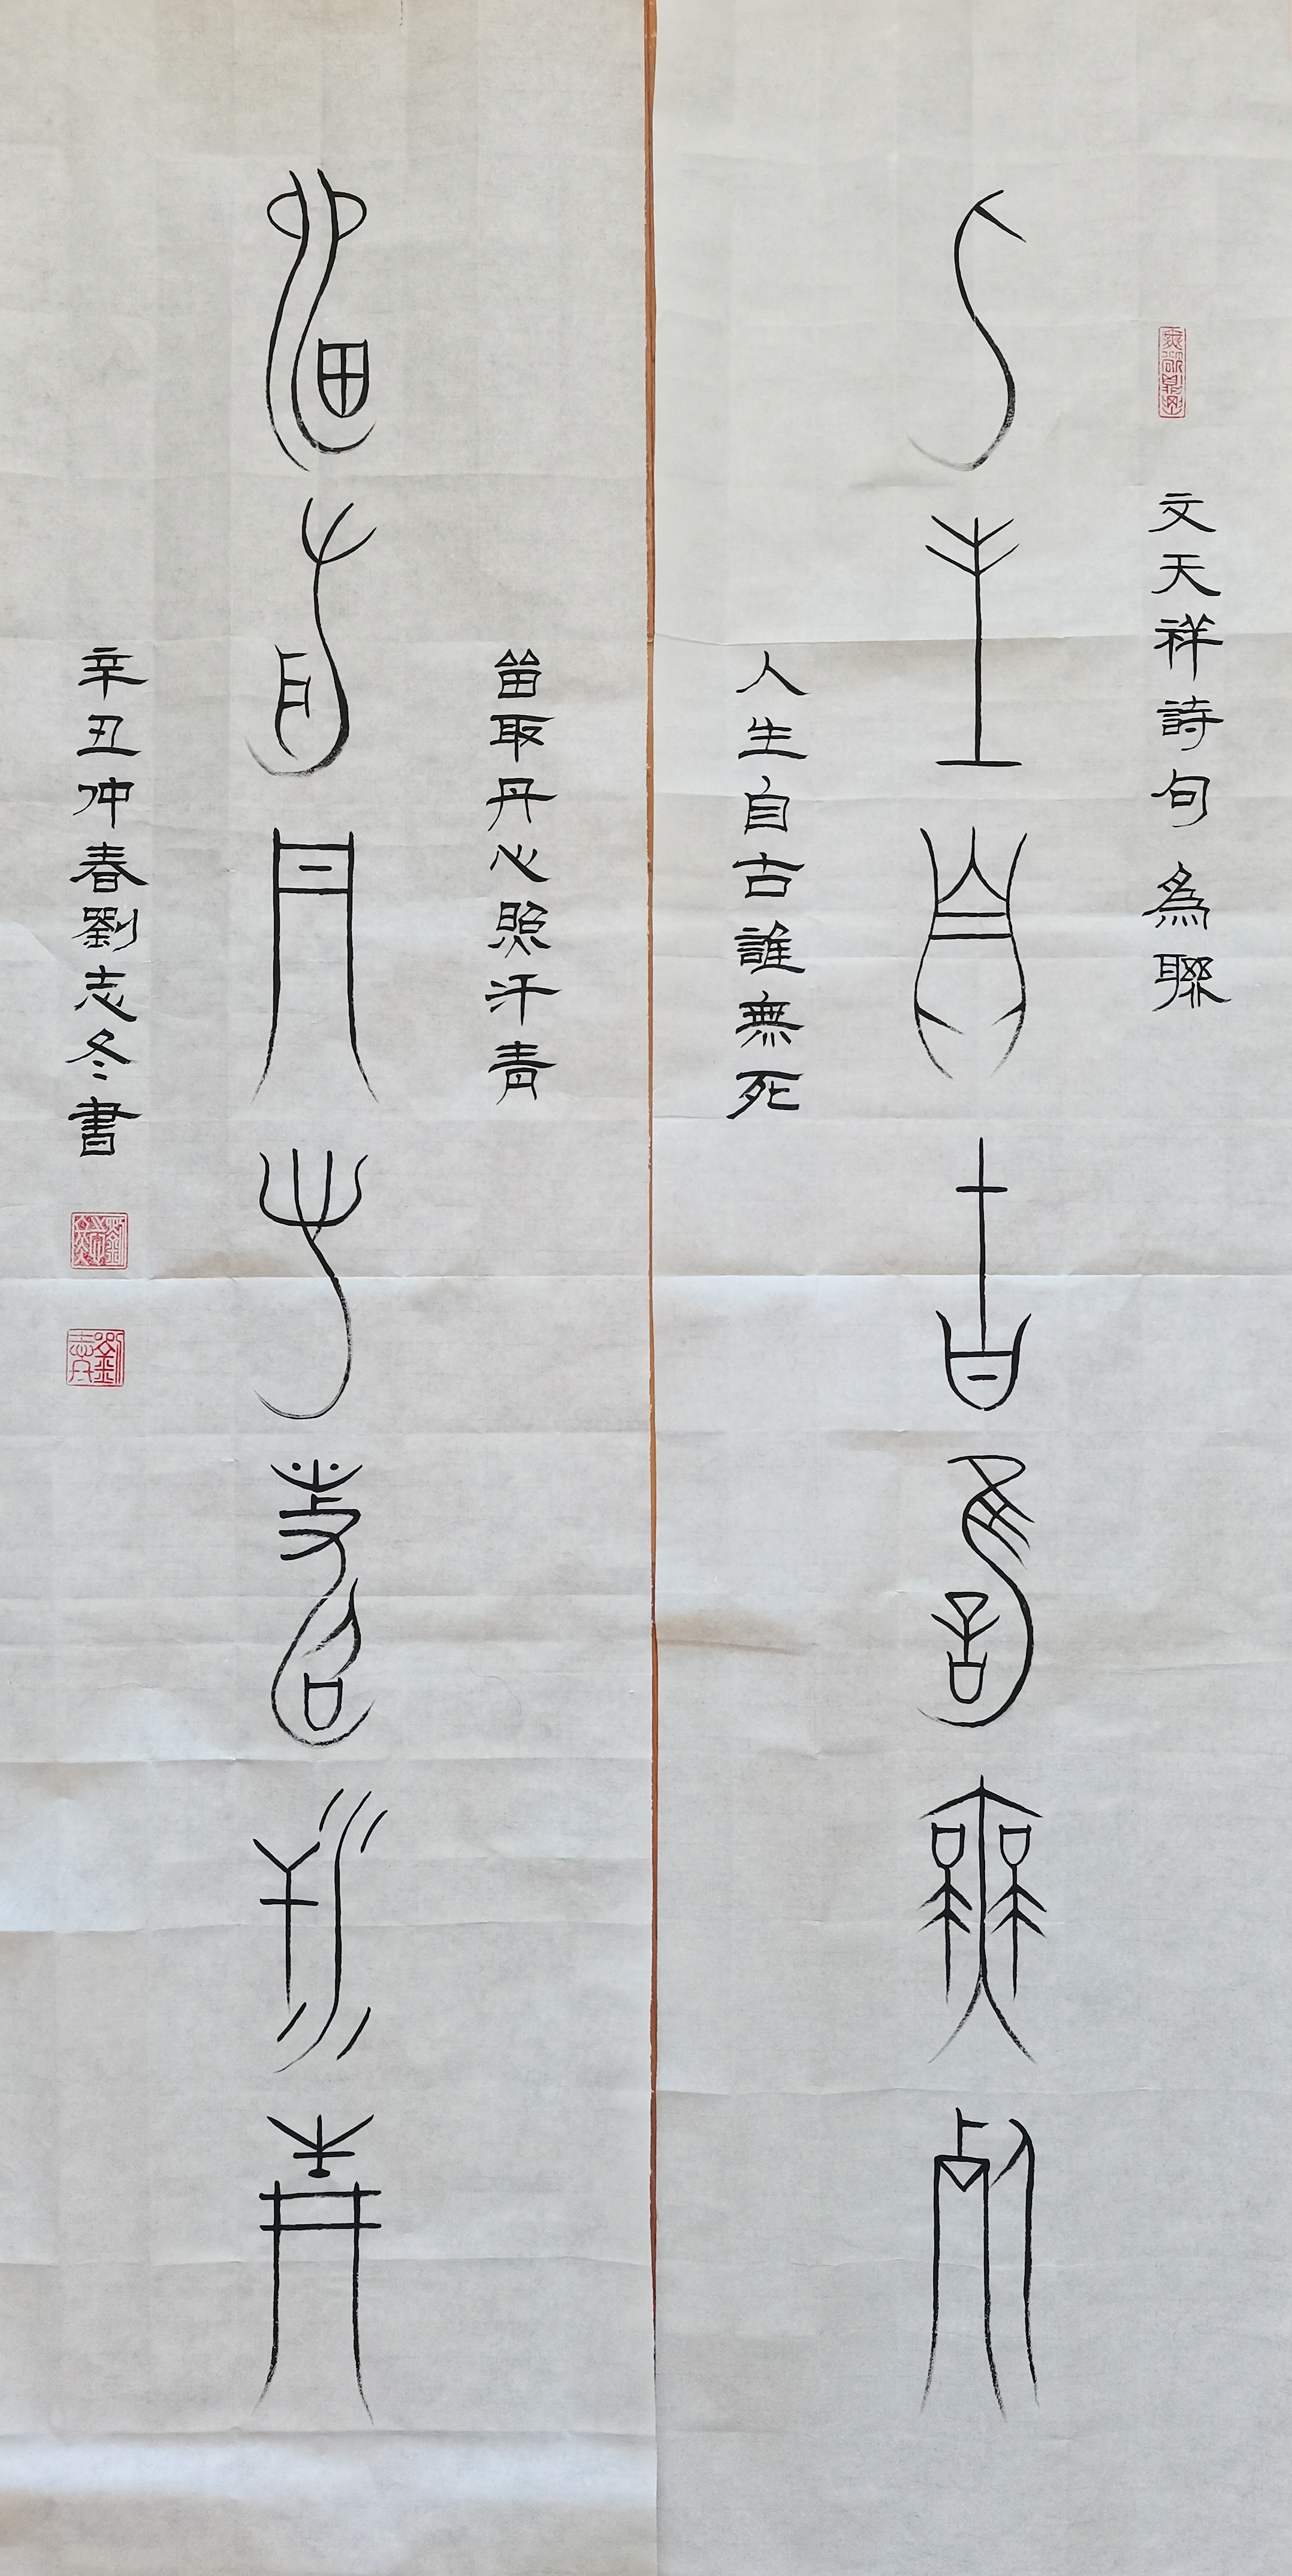 文天祥詩句為聯
人生自古誰無死
人生自古誰無死
畱取丹心照汗青
畱取丹心照汗青
辛丑仲春劉志冬書